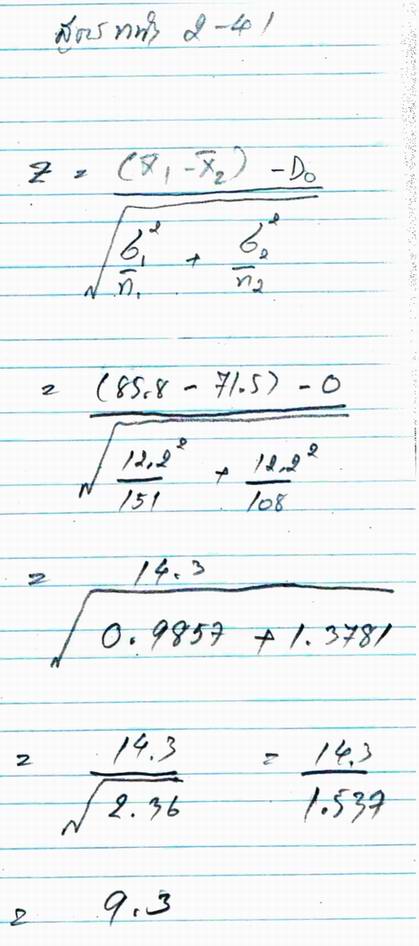 สูตร หน้า 2-41
Z = (x̄₁ - x̄₂) - D₀ / √(σ₁²/n₁ + σ₂²/n₂)
= (85.8 - 71.5) - 0 / √(12.2²/151 + 12.2²/108)
= 14.3 / √(0.9857 + 1.3781)
= 14.3 / √2.36 = 14.3 / 1.537
= 9.3